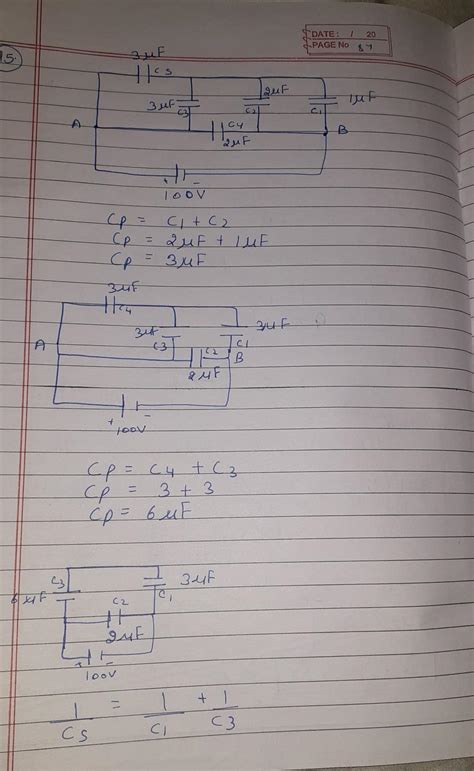 DATE: / 20
PAGE No 87
15.
3μF
C5
3μF C3 2μF C2 C1 1μF
A C4 B
2μF
100V -
Cp = C1 + C2
Cp = 2μF + 1μF
Cp = 3μF
3μF
C4
3μF C3 3μF C1
A C2 B
2μF
+ 100V -
Cp = C4 + C3
Cp = 3 + 3
Cp = 6μF
C3 3μF
6μF C2 C1
2μF
+ -
100V
1/CS = 1/C1 + 1/C3